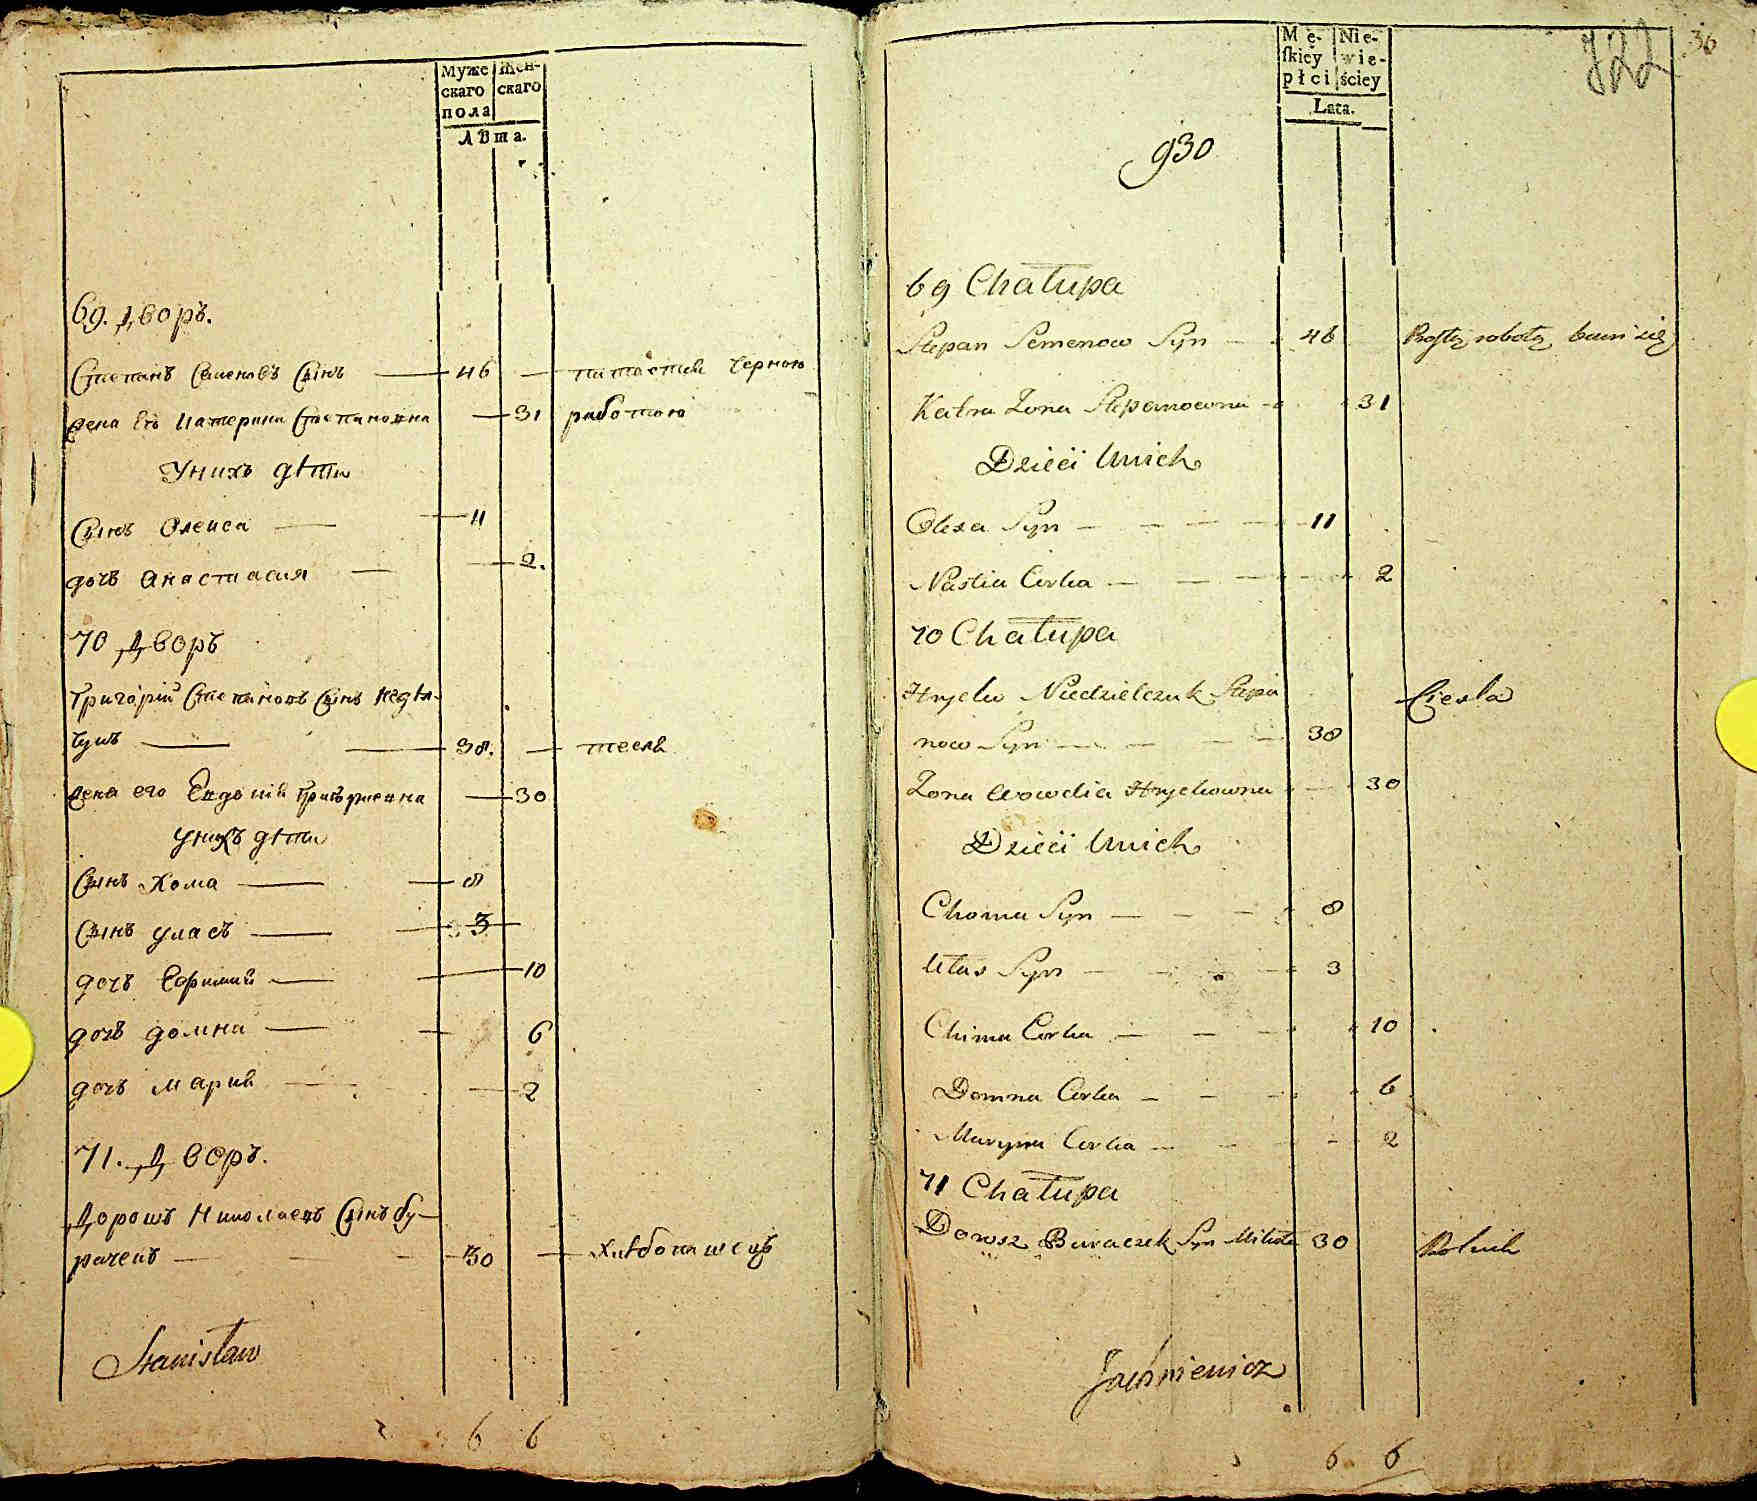 Муже
скаго
пола
Жен-
скаго
Лѣта.
69. Дворъ.
Степанъ Семеновъ Сынъ — 46 — питаетъй черною
жена Его Катерина Степановна — 31 работою
Унихъ дѣти
Сынъ Олекса — 11
дочъ Анастасия — 2.
70 Дворъ
Григорий Степановъ Сынъ Недѣл-
чукъ — 38. — тесля
жена его Евдокия Григориевна — 30
Унихъ дѣти
Сынъ Хома — 8
Сынъ Уласъ — 3
дочъ Ефимия — 10
дочъ Домна — 6
дочъ Мария — 2
71. Дворъ.
Дорошъ Николаевъ Сынъ бу-
рачекъ — 30 — хлѣбопашецъ
Stanisław
6 6
Mę-
skiey
płci
Nie-
wie-
ściey
Lata.
922
36
930
69 Chałupa
Stepan Semenow Syn — 46 Prostą robotą bawi się
Katra Zona Stepanowna — 31
Dzieci Unich
Olexa Syn — 11
Nastia Corka — 2
70 Chałupa
Hryćko Niedzielczuk Stepa Ciesla
now Syn — 38
Zona Wowdia Hryckowna — 30
Dzieci Unich
Choma Syn — 8
Ułas Syn — 3
Chima Corka — 10
Domna Corka — 6
Maryna Corka — 2
71 Chałupa
Dorosz Buraczek Syn Mikoła 30 Rolnik
6 6